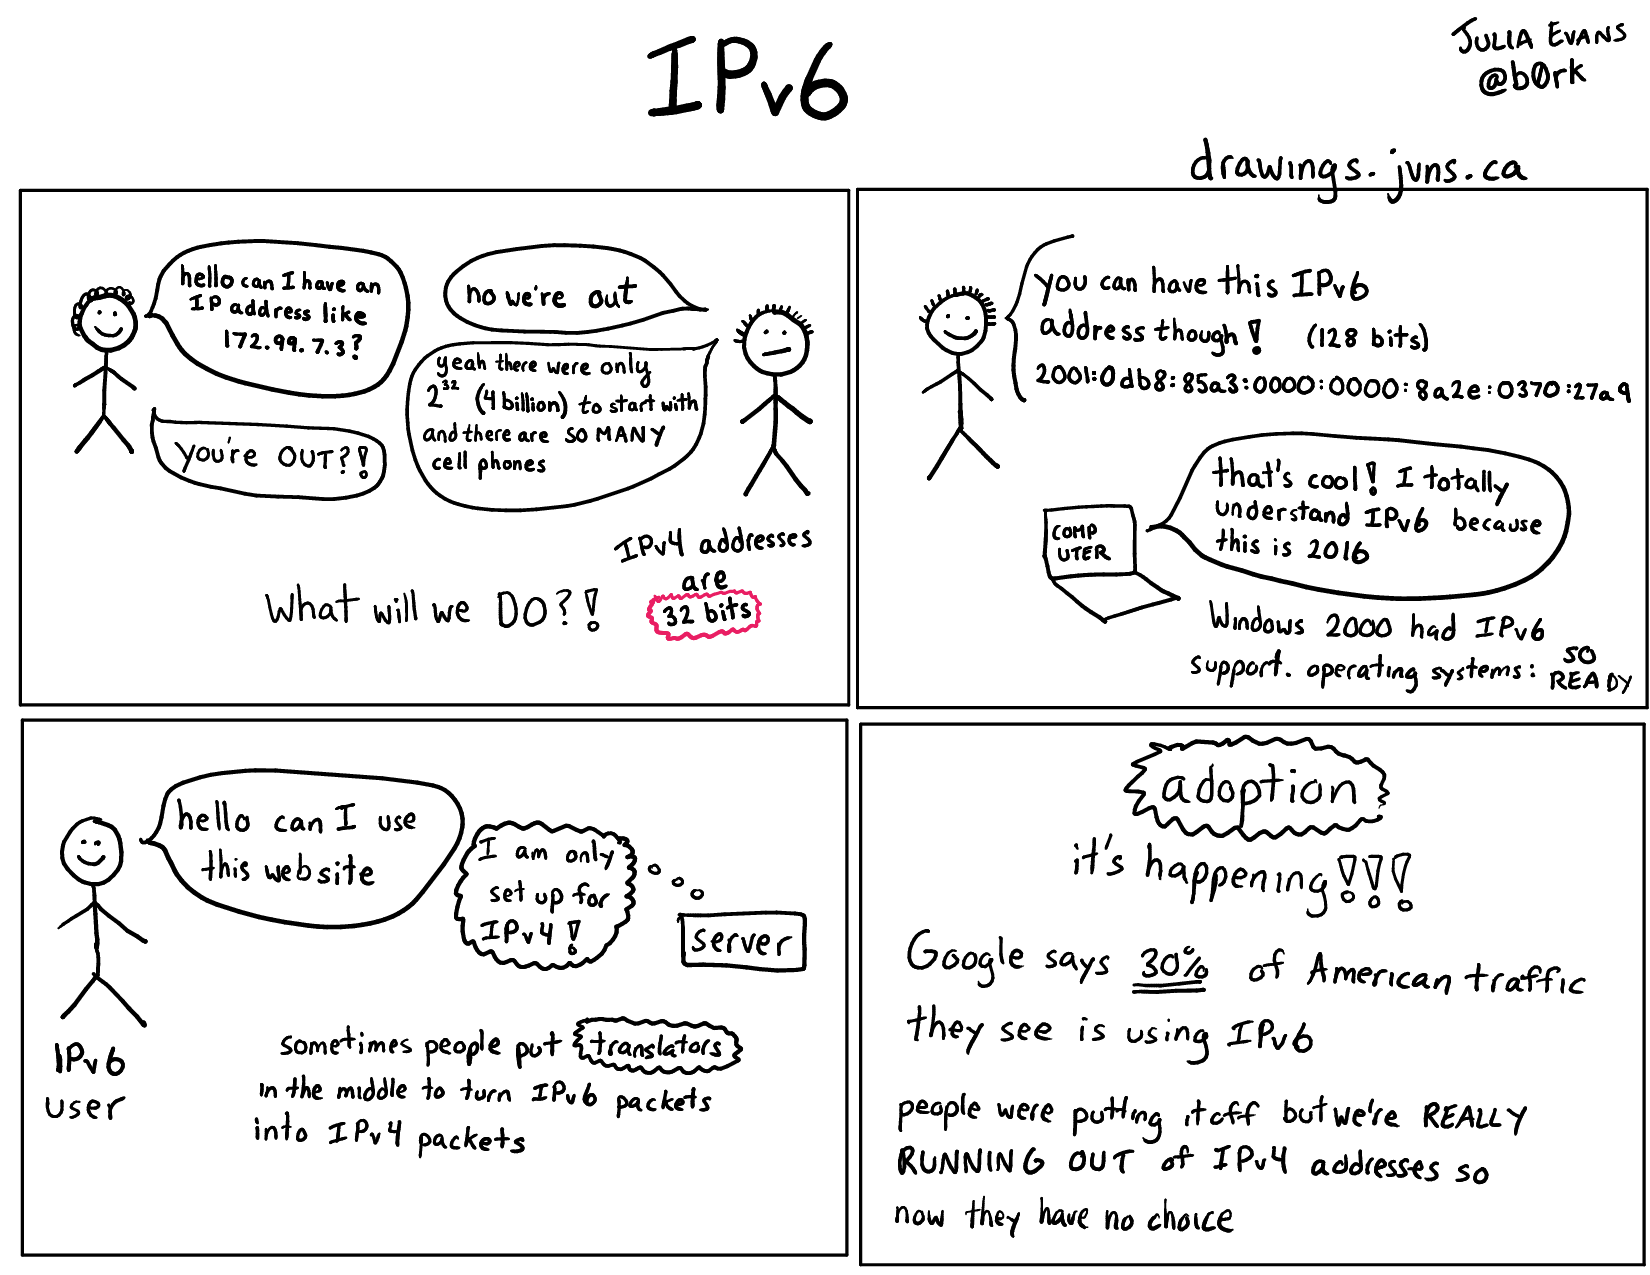 IPv6
JULIA EVANS
@b0rk
drawings.jvns.ca
hello can I have an
IP address like
172.99.7.3?
no we're out
you're OUT?!
yeah there were only
2^32 (4 billion) to start with
and there are SO MANY
cell phones
What will we DO?!
IPv4 addresses
are
32 bits
you can have this IPv6
address though! (128 bits)
2001:0db8:85a3:0000:0000:8a2e:0370:27a9
that's cool! I totally
understand IPv6 because
this is 2016
COMP
UTER
Windows 2000 had IPv6
support. operating systems: SO
READY
hello can I use
this website
I am only
set up for
IPv4!
server
IPv6
user
sometimes people put translators
in the middle to turn IPv6 packets
into IPv4 packets
adoption
it's happening!!!
Google says 30% of American traffic
they see is using IPv6
people were putting it off but we're REALLY
RUNNING OUT of IPv4 addresses so
now they have no choice